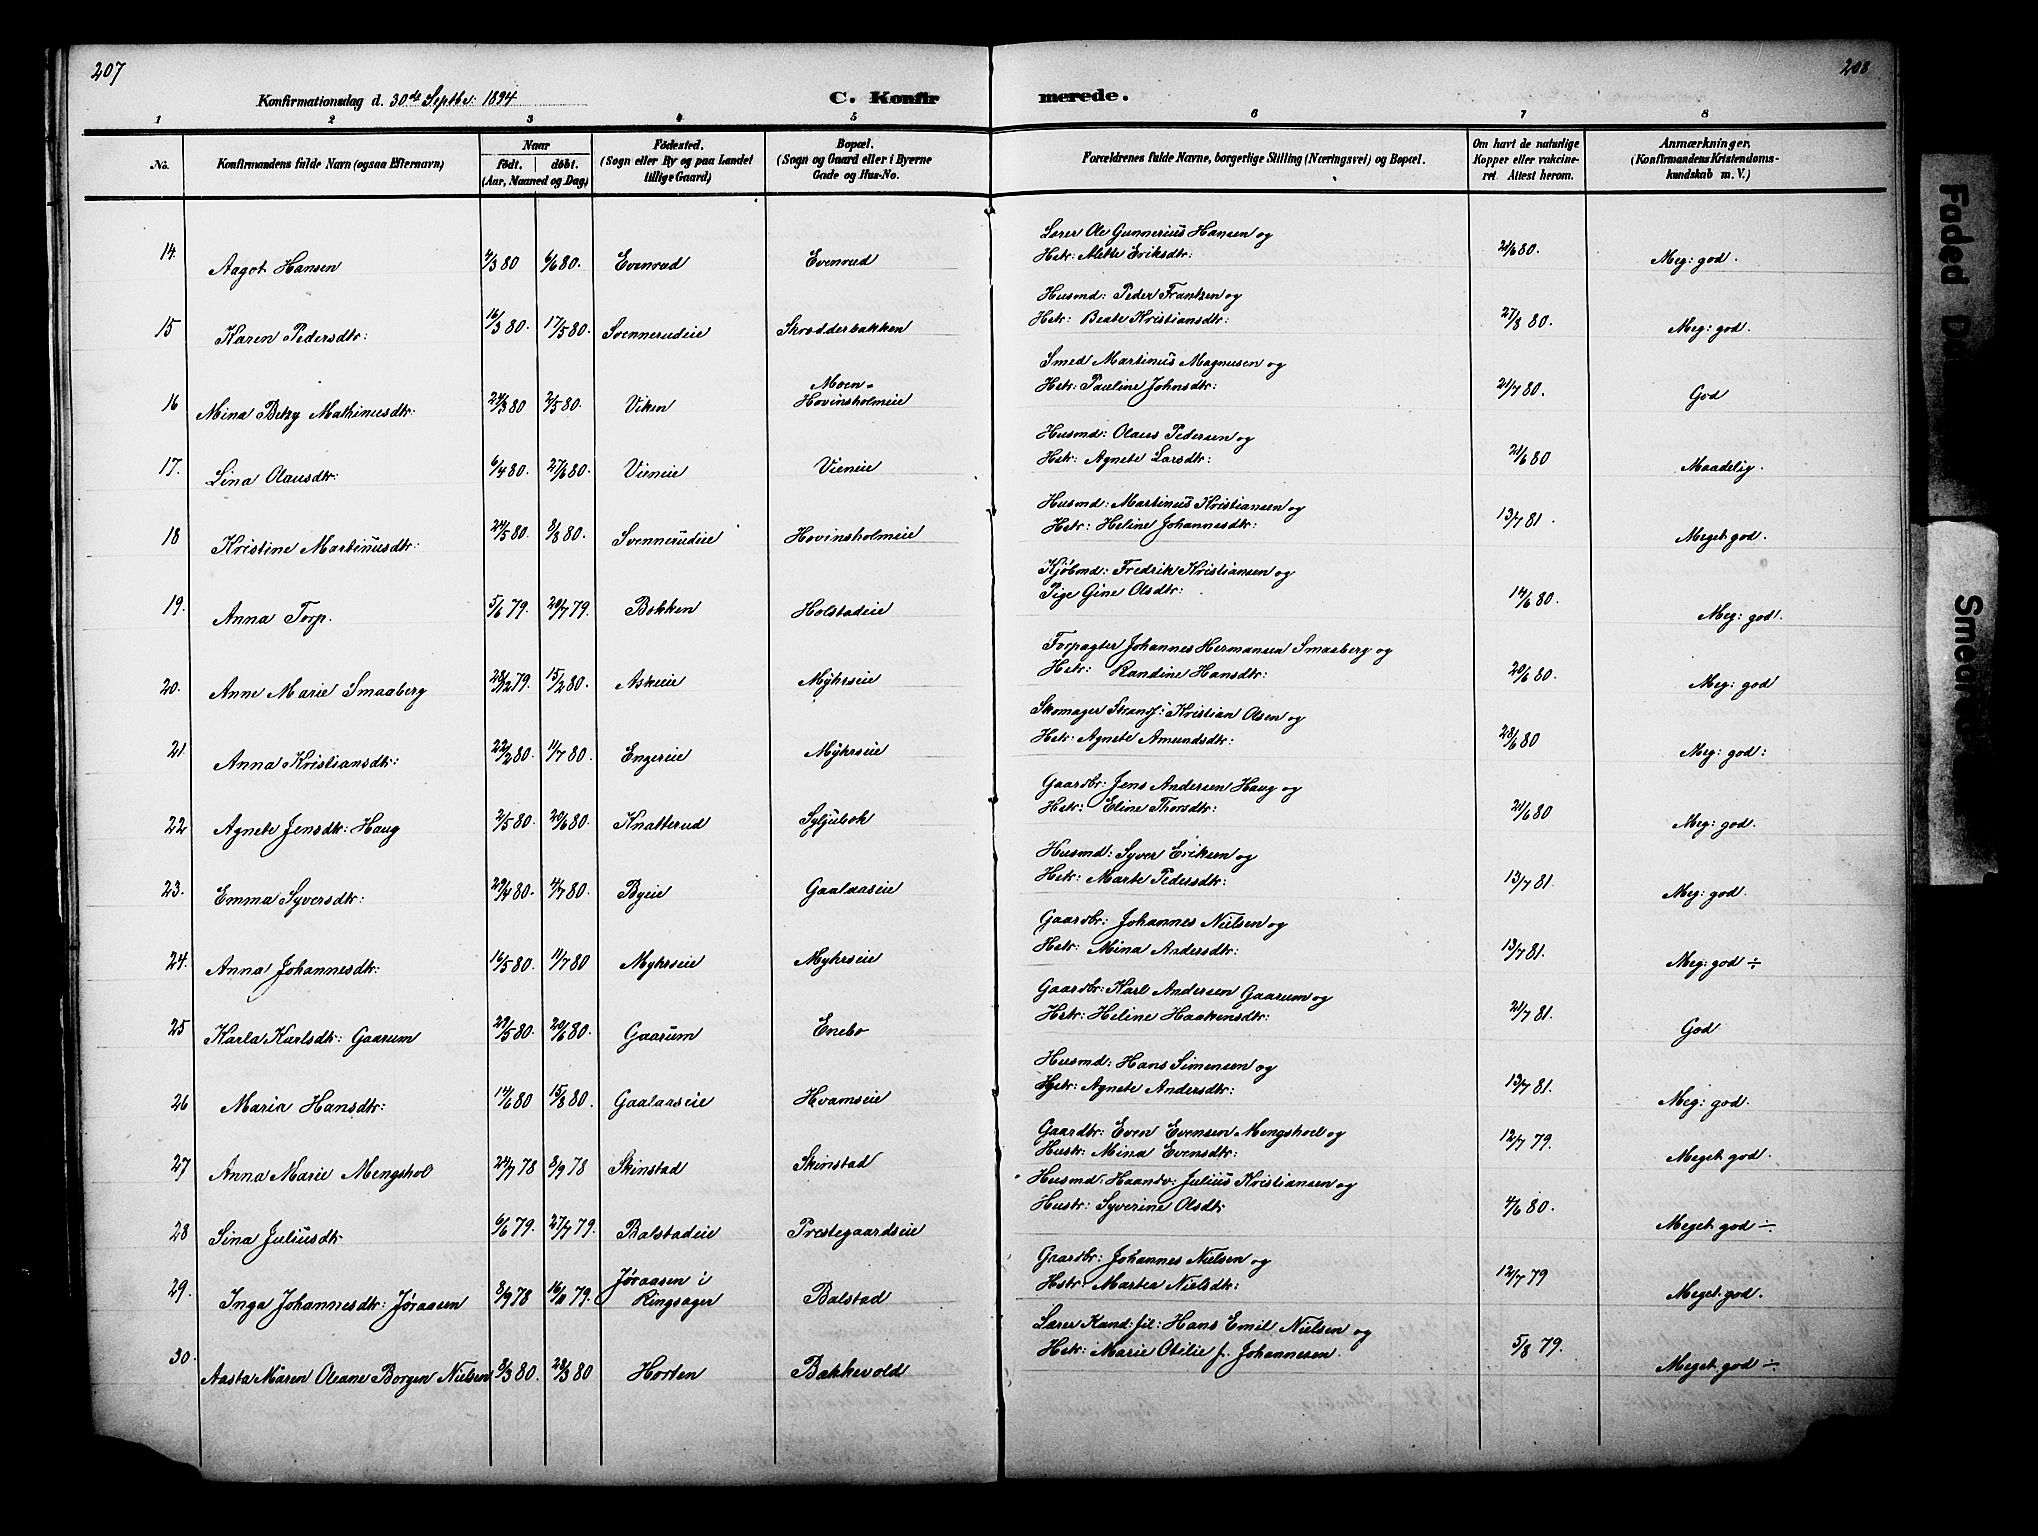 207
208
Konfirmationsdag d. 30de Septbr: 1894
C. Konfir
merede.
1 2 3 4 5 6 7 8
No. Konfirmandens fulde Navn (ogsaa Efternavn) Naar Fødested. Bopæl. Forældrenes fulde Navne, borgerlige Stilling (Næringsvei) og Bopæl. Om havt de naturlige Anmærkninger.
født. døbt. (Sogn eller By og paa Landet (Sogn og Gaard eller i Byerne Kopper eller vakcine- (Konfirmandens Kristendoms-
(Aar, Maaned og Dag) tillige Gaard) Gade og Hus-No. ret. Attest herom. kundskab m. V.)
Lærer Ole Gunnerius Hansen og
14. Aagot Hansen 4/3 80 6/6 80. Evenrud Evenrud Hstr: Alette Eriksdtr: 21/6 80. Meg: god.
Husmd: Peder Frantzen og
15 Karen Pedersdtr: 16/3 80 17/5 80. Svennerudeie Skrædderbakken Hstr: Beate Kristiansdtr: 27/8 80. Meg: god.
Smed Martinus Magnusen og
Moen-
16 Mina Betzy Mathinusdtr: 24/3 80 2/5 80. Viken Hovinsholmeie Hstr: Pauline Johnsdtr: 21/7 80. God
Husmd: Olaus Pedersen og
17. Lina Olausdtr: 6/4 80 27/6 80. Vieneie Vieneie Hstr: Agnete Larsdtr: 21/6 80 Maadelig.
Husmd: Martinus Kristiansen og
18 Kristine Martinusdtr: 24/5 80 8/8 80. Svennerudeie Hovinsholmeie Hstr: Heline Johannesdtr: 13/7 81. Meget god.
Kjøbmd: Fredrik Kristiansen og
19. Anna Torp. 5/6 79. 20/7 79. Bakken Holstadeie Pige Gine Olsdtr: 14/6 80. Meg: god.
Forpagter Johannes Hermansen Smaaberg og
20. Anne Marie Smaaberg 28/12 79. 15/2 80. Askeie Myhrseie Hstr: Randine Hansdtr: 20/6 80. Meg: god
Skomager Strandf: Kristian Olsen og
21. Anna Kristiansdtr: 22/2 80. 11/7 80. Engereie Myhrseie Hstr: Agnete Amundsdtr: 28/6 80 Meg: god:
Gaardbr: Jens Andersen Haug og
22 Agnete Jensdtr: Haug 2/5 80. 20/6 80. Knatterud Syljubæk Hstr: Eline Thorsdtr: 21/6 80 Meg: god.
Husmd: Syver Eriksen og
23. Emma Syversdtr: 29/4 80. 4/7 80. Byeie Gaalaaseie Hstr: Marte Pedersdtr: 13/7 81. Meg: god.
Gaardbr: Johannes Nielsen og
24. Anna Johannesdtr: 16/5 80. 11/7 80 Myhrseie Myhrseie Hstr: Mina Andersdtr: 13/7 81. Meg: god ÷
Gaardbr: Karl Andersen Gaarum og
25 Karla Karlsdtr: Gaarum 29/5 80. 20/6 80. Gaarum Enebo Hstr: Heline Haakensdtr: 21/7 81. God
Husmd: Hans Simensen og
26 Maria Hansdtr: 14/6 80 15/8 80. Gaalaaseie Hvamseie Hstr: Agnete Andersdtr: 13/7 81. Meg: god.
Gaardbr: Even Evensen Mengshoel og
27 Anna Marie Mengshol 24/7 78 8/9 78 Skinstad Skinstad Hustr: Mina Evensdtr: 12/7 79. Meget god.
Husmd: Haandv: Julius Kristiansen og
28 Sina Juliusdtr 6/6 79. 27/7 79. Balstadeie Prestegaardseie Hustr: Syverine Olsdtr 4/6 80. Meget god ÷
Gaardbr: Johannes Nielsen og
Jøraasen i
29. Inga Johannesdtr: Jøraasen 8/9 78 79. Ringsager Balstad Hstr: Martea Nielsdtr: 12/7 79 Meget god.
Lærer Kand. fil: Hans Emil Nielsen og
30. Aasta Maren Oleane Borgen Nielsen 8/3 80. 28/3 80 Horten Bakkevold Hstr: Marie Otilie f. Johannesen. 5/8 79. Meget god ÷
Faded
Smeared